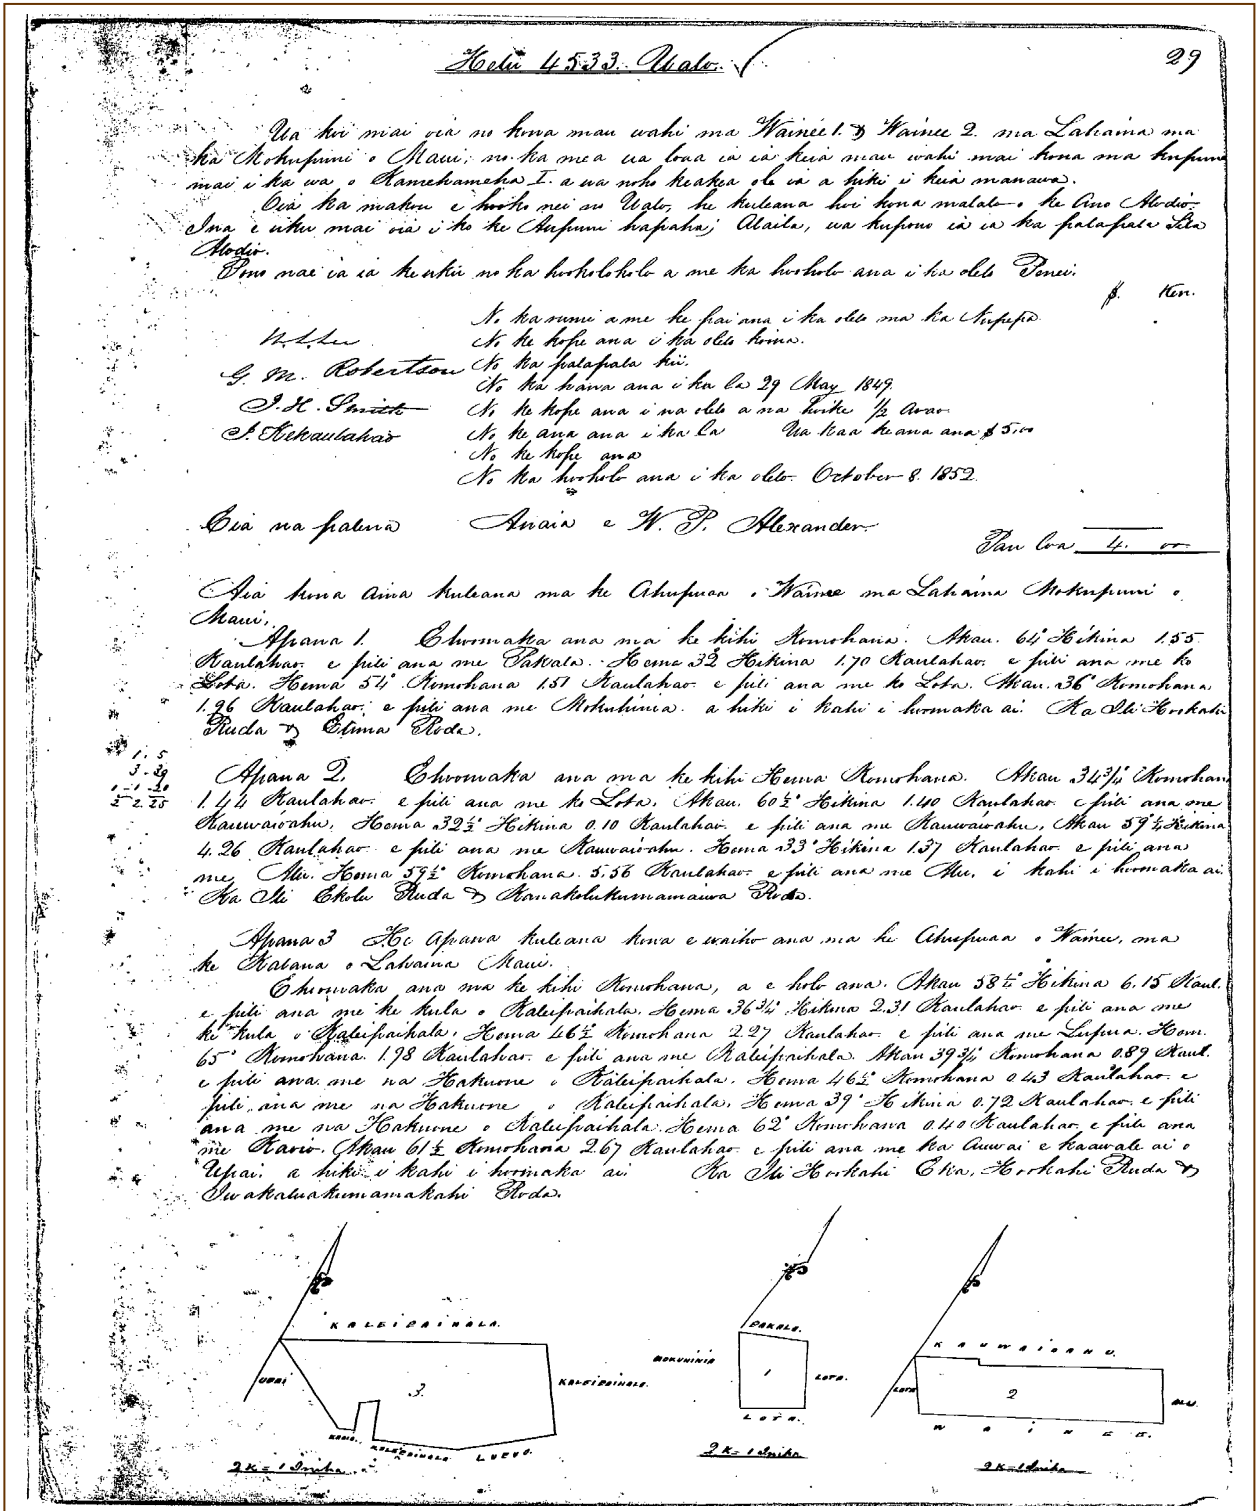 Helu 4533. Ualo.
29
Ua koi mai oia no kona mau wahi ma Wainee 1. & Wainee 2. ma Lahaina ma
ka Mokupuni o Maui, no ka mea ua loaa ia ia keia mau wahi mai kona ma kupuna
mai i ka wa o Kamehameha I. a ua noho keakea ole ia a hiki i keia manawa.
Oia ka makou e hooko nei no Ualo, he kuleana hoi kona malalo o ke Ano Alodio.
Ina e uku mai oia i ko ke Aupuni hapaha; Alaila, ua kupono ia ia ka palapala Sila
Alodio.
Pono nae ia ia ke uku no ka hookolokolo a me ka hooholo ana i ka olelo Penei.
$. Ken.
No ka rumi a me ke pai ana i ka olelo ma ka Nupepa
No ke kope ana i ka olelo koina.
G. M. Robertson No ka palapala kii.
No ka hana ana i ka la 29 May 1849.
J. H. Smith No ke kope ana i na olelo a na hoike 1/2
J. Kekaulahao No ke ana ana i ka la Ua kaa ke ana ana $5,00
No ke kope ana
No ka hooholo ana i ka olelo. October 8. 1852.
Eia na palena Anaia e W. P. Alexander.
Pau loa 4. 00
Aia kona aina kuleana ma ke Ahupuaa o Wainee ma Lahaina Mokupuni o
Maui.
Apana 1. E hoomaka ana ma ke kihi Komohana. Akau. 64° Hikina 1.55
Kaulahao. e pili ana me Pakala. Hema 32 Hikina 1.70 Kaulahao. e pili ana me ko
Lota. Hema 54° Komohana 1.51 Kaulahao e pili ana me ko Lota. Akau. 36° Komohana
1.96 Kaulahao. e pili ana me Mokuhinia. a hiki i kahi i hoomaka ai. Ka Ili Hookahi
Ruda & Elima Roda.
1. 5
3. 29
1 - 1 - 20
2 2. 25
Apana 2. E hoomaka ana ma ke kihi Hema Komohana. Akau 34 3/4° Komohana
1.44 Kaulahao. e pili ana me ko Lota. Akau. 60 1/2° Hikina 1.40 Kaulahao e pili ana me
Kauwaioahu, Hema 32 1/2° Hikina 0.10 Kaulahao. e pili ana me Kauwaioahu, Akau 59 1/2° Hikina
4.26 Kaulahao. e pili ana me Kauwaioahu. Hema 33° Hikina 1.37 Kaulahao e pili ana
me Alu. Hema 59 1/2° Komohana. 5.56 Kaulahao. e pili ana me Alu, i kahi i hoomaka ai.
Ka Ili Ekolu Ruda & Kanakolukumamaiwa Roda.
Apana 3 He Apana kuleana kona e waiho ana ma ke Ahupuaa o Wainee, ma
ke Kalana o Lahaina Maui.
E hoomaka ana ma ke kihi Komohana, a e holo ana. Akau 58 1/2° Hikina 6.15 Kaul.
e pili ana me ke kula o Kaleipaihala. Hema 36 3/4° Hikina 2.31 Kaulahao e pili ana me
ke kula o Kaleipaihala. Hema 46 1/2° Komohana 2.27 Kaulahao. e pili ana me Lupua. Hem.
65° Komohana. 1.98 Kaulahao. e pili ana me Kaleipaihala. Akau 39 3/4° Komohana 0.89 Kaul.
e pili ana. me na Hakuone o Kaleipaihala. Hema 46 1/2° Komohana 0.43 Kaulahao. e
pili ana me na Hakuone o Kaleipaihala. Hema 39° Hikina 0.72 Kaulahao. e pili
ana me na Hakuone o Kaleipaihala. Hema 62° Komohana 0.40 Kaulahao. e pili ana
me Kaoio. Akau 61 1/2 Komohana 2.67 Kaulahao e pili ana me ka Auwai e kaawale ai o
Upai. a hiki i kahi i hoomaka ai. Ka Ili Hookahi Eka, Hookahi Ruda &
Iwakaluakumamakahi Roda.
KALEIPAIHALA.
UPAI
3.
KALEIPAIHALA.
KALEIPAIHALA
2 K = 1 Iniha
PAKALA.
MOKUHINIA
1
LOTA.
LOTA.
2 K = 1 Iniha
KAUWAIOAHU.
LOTA
2
ALU.
WAINEE.
2 K = 1 Iniha